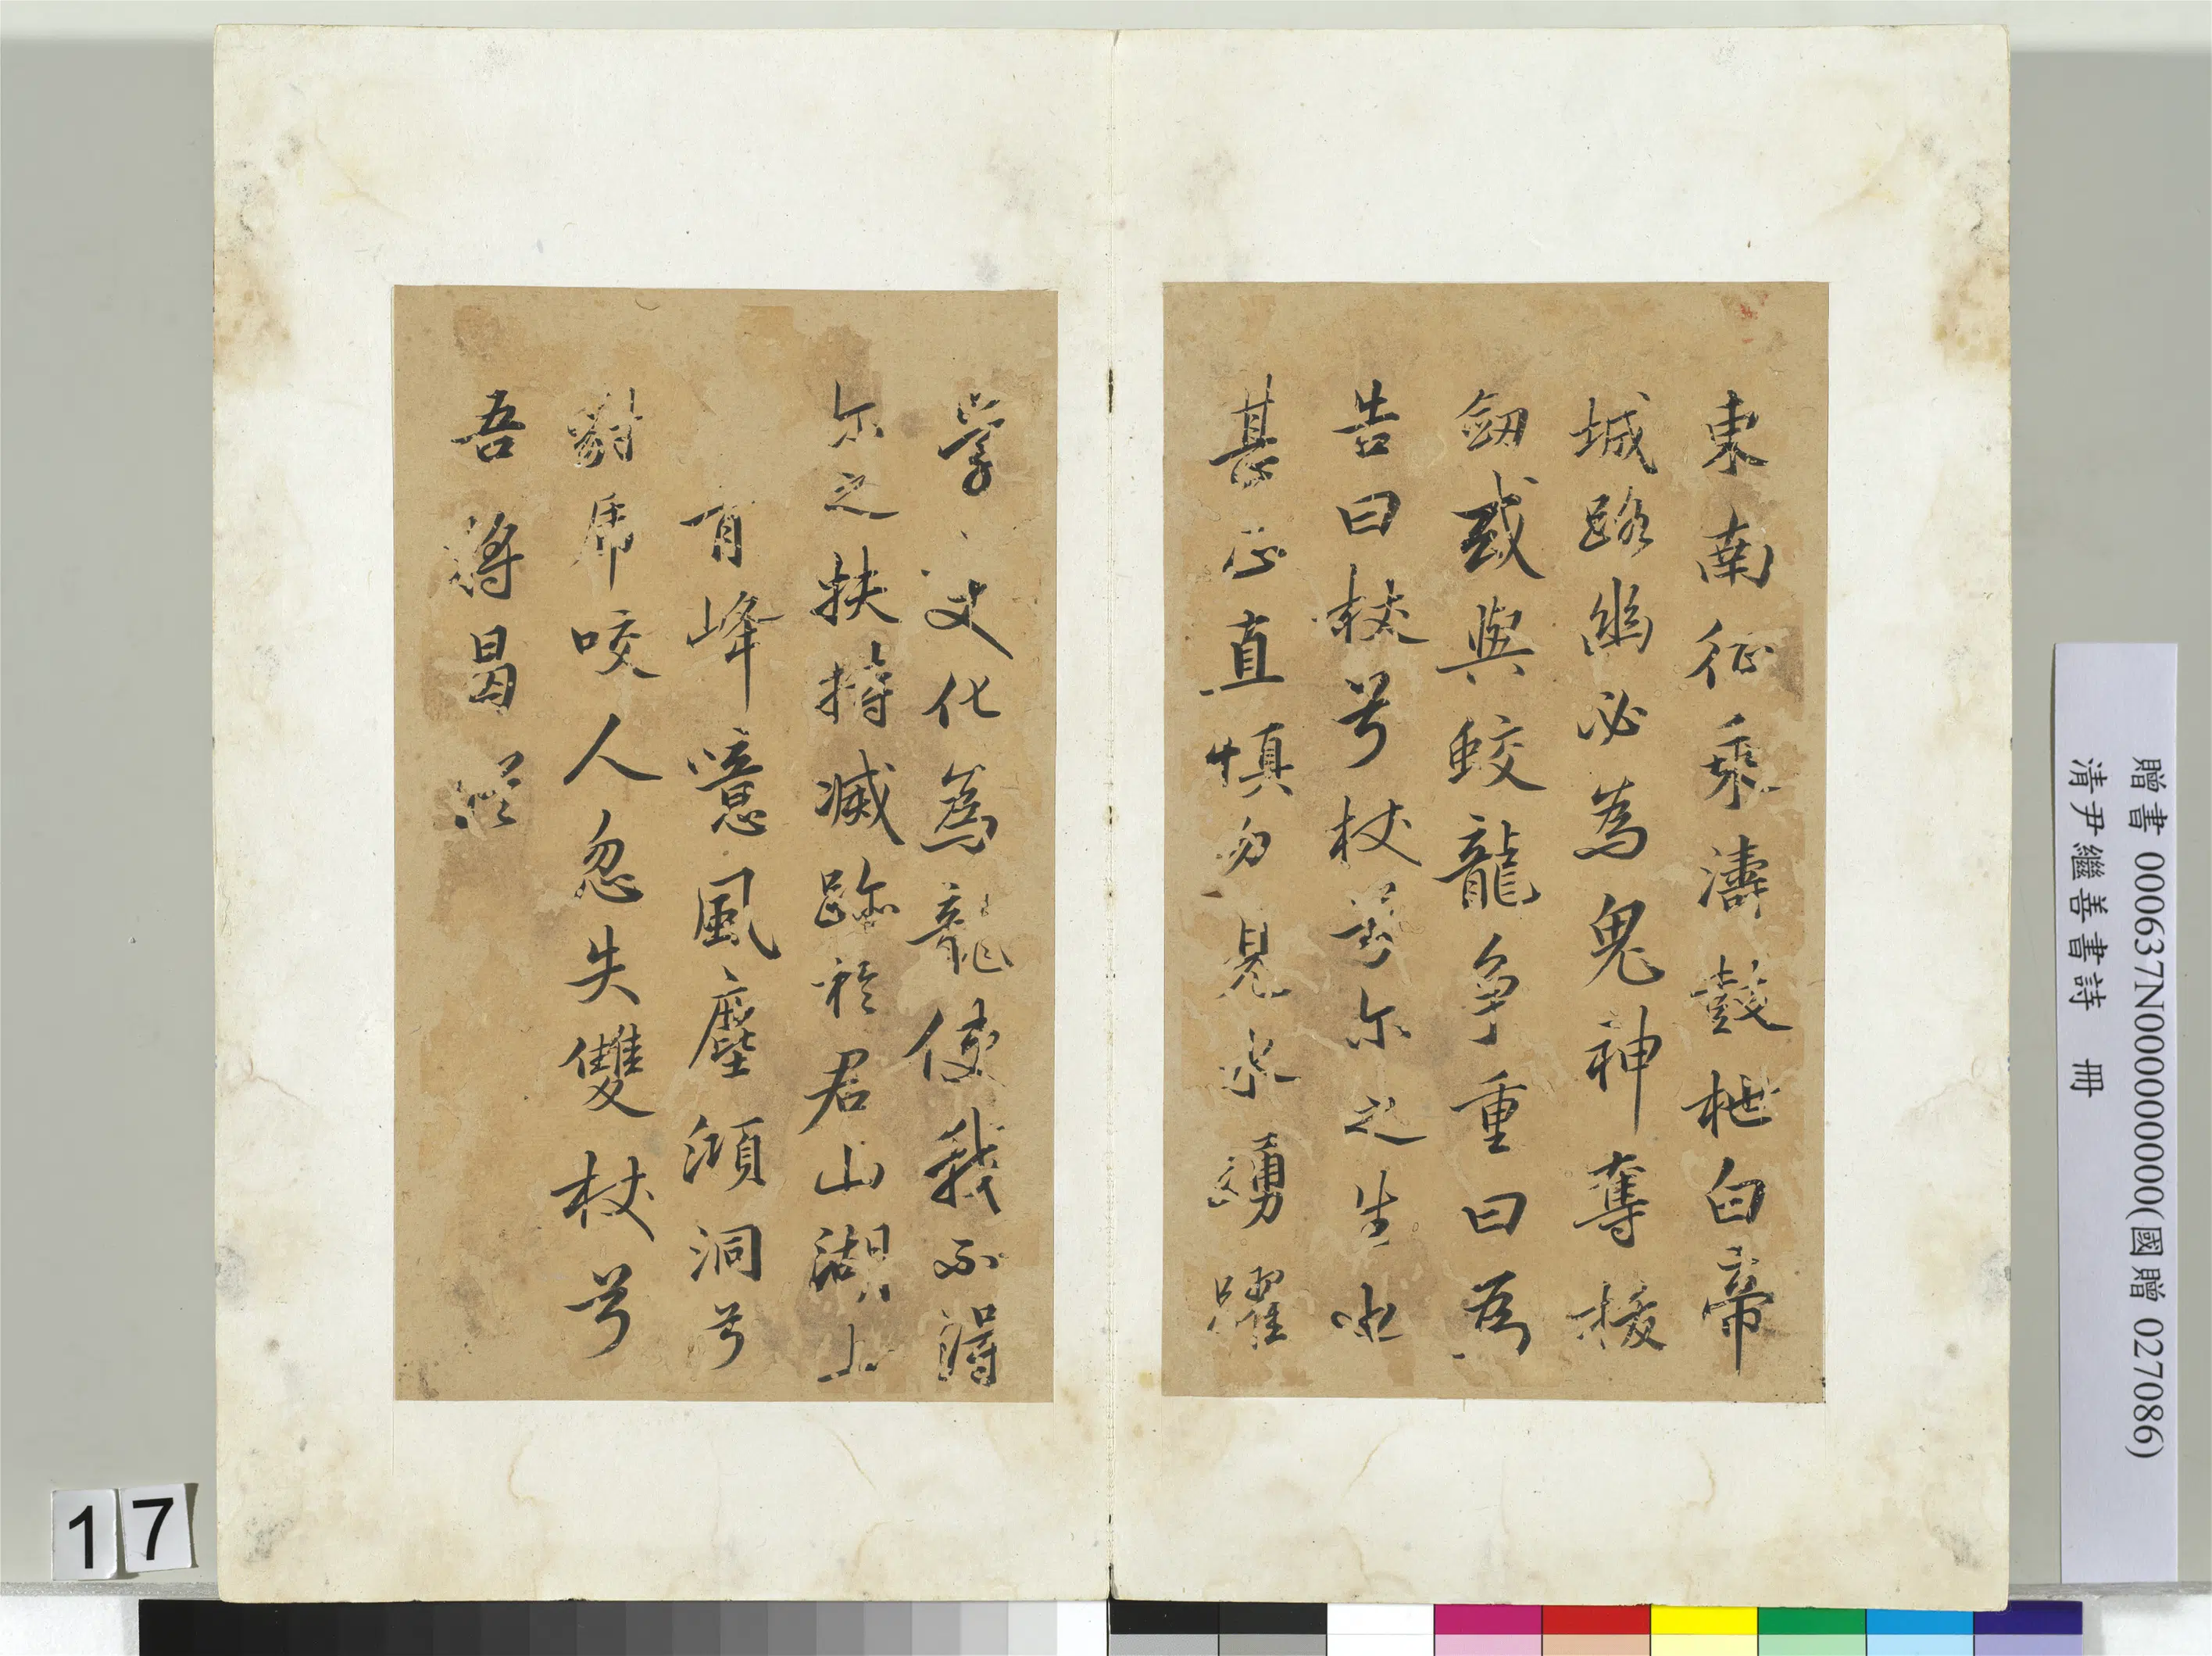 東南征乘濤鼓枻白帝
城路幽必為鬼神奪拔
劒或與蛟龍爭重曰為
告曰杖兮杖兮尔之生也
甚正直慎勿見水踴躍
學變化為龍使我不得
尔之扶持滅跡於君山湖上
青峰噫風塵澒洞兮
豺虎咬人忽失雙杖兮
吾將曷從
贈書 000637N000000000(國贈 027086)
清尹繼善書詩 冊
17